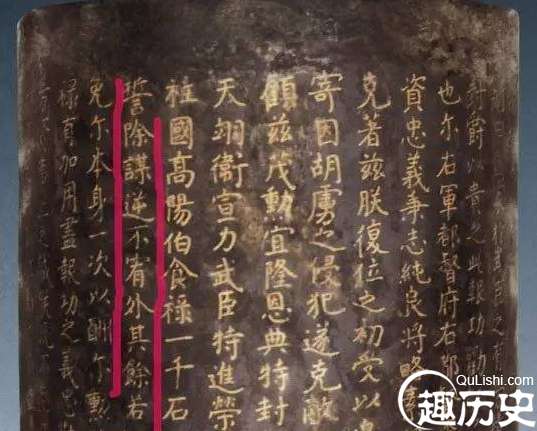 封爵以貴之此報功勸
也尔右軍都督府右都
資忠義秉志純良將略
克著兹朕復位之初受以
寄因胡虜之侵犯遂克敵
顧兹茂勳宜隆恩典特封
天翊衛宣力武臣特進榮
柱國高陽伯食禄一千石
誓除謀逆不宥外其餘若
免尔本身一次以酬尔勲
禄有加用盡報功之義
QuLishi.com
趣历史